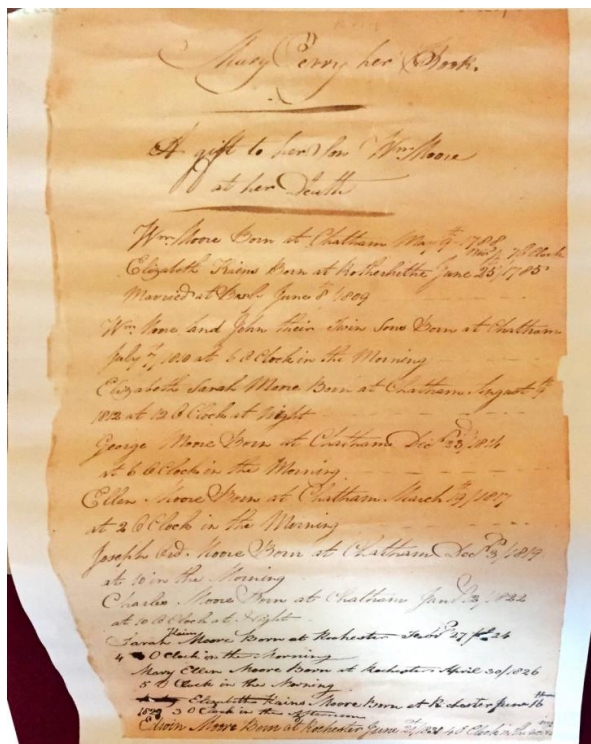 Mary Perry her Book.
A gift to her Son Wm Moore
at her Death
Wm Moore Born at Chatham May 9th 1788
Elizabeth Kains Born at Rotherhithe June 25 1785
Married at June 8th 1809
Wm Moore and John their Twin Sons Born at Chatham
July 1810 at 6 O Clock in the Morning
Elizabeth Sarah Moore Born at Chatham August 9
1812 at 12 O Clock at Night
George Moore Born at Chatham Decr 23d 1814
at 6 O Clock in the Morning
Ellen Moore Born at Chatham March 19 1817
at 2 O Clock in the Morning
Joseph Moore Born at Chatham Decr 3 1819
at 10 in the Morning
Charles Moore Born at Chatham 1822
at 10 O Clock at Night
Kains
Sarah Moore Born at Rochester 27 24
4 O Clock in the Morning
Mary Ellen Moore Born at Rochester April 30 1826
5 O Clock in the Morning
Elizabeth Kains Moore Born at Rochester June 16
3 O Clock in the Afternoon
Edwin Moore Born at Rochester June O Clock